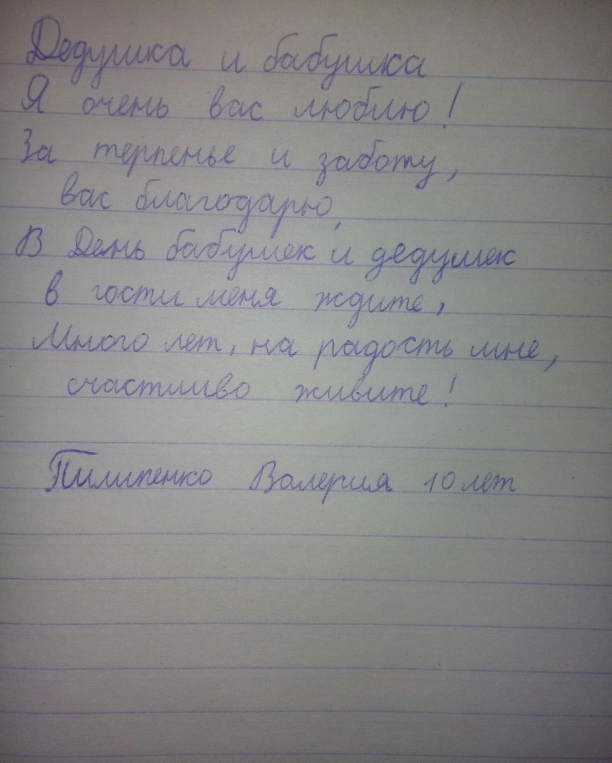 Дедушка и бабушка
Я очень вас люблю!
За терпенье и заботу,
вас благодарю,
В День бабушек и дедушек
в гости меня ждите,
Много лет, на радость мне,
счастливо живите!
Пилипенко Валерия 10 лет